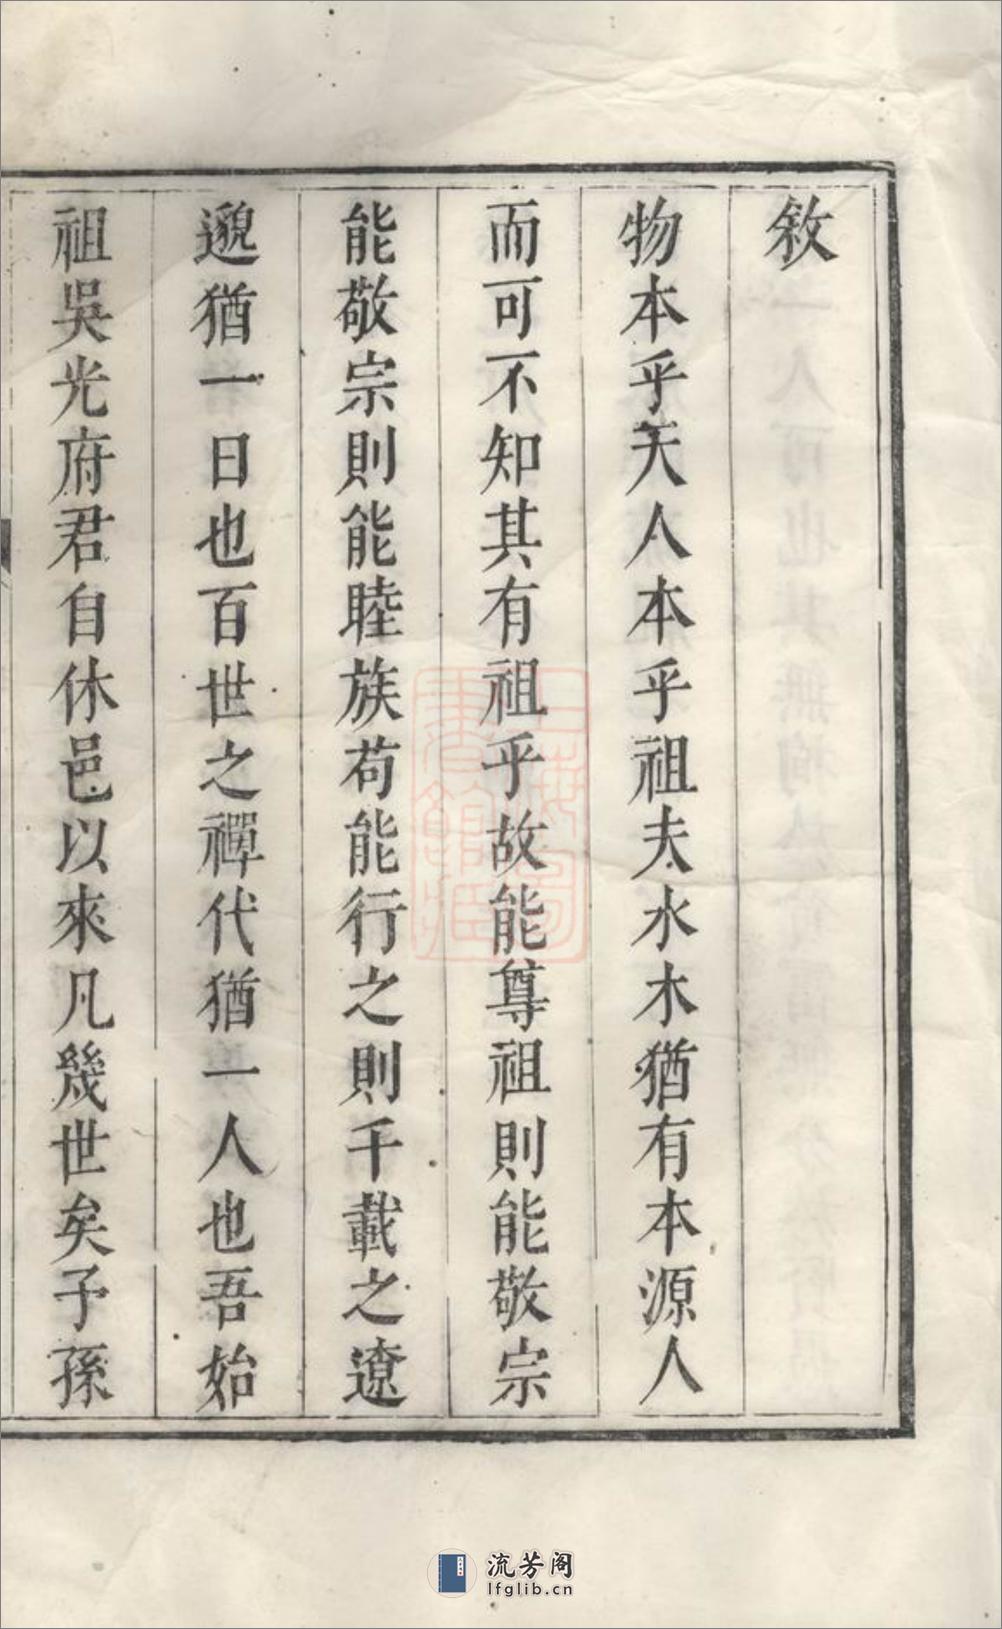 敘
物本乎天人本乎祖夫水木猶有本源人
而可不知其有祖乎故能尊祖則能敬宗
能敬宗則能睦族苟能行之則千載之遼
邈猶一日也百世之禪代猶一人也吾始
祖吳光府君自休邑以來凡幾世矣子孫
上海圖
書館藏
流芳阁
lfglib.cn